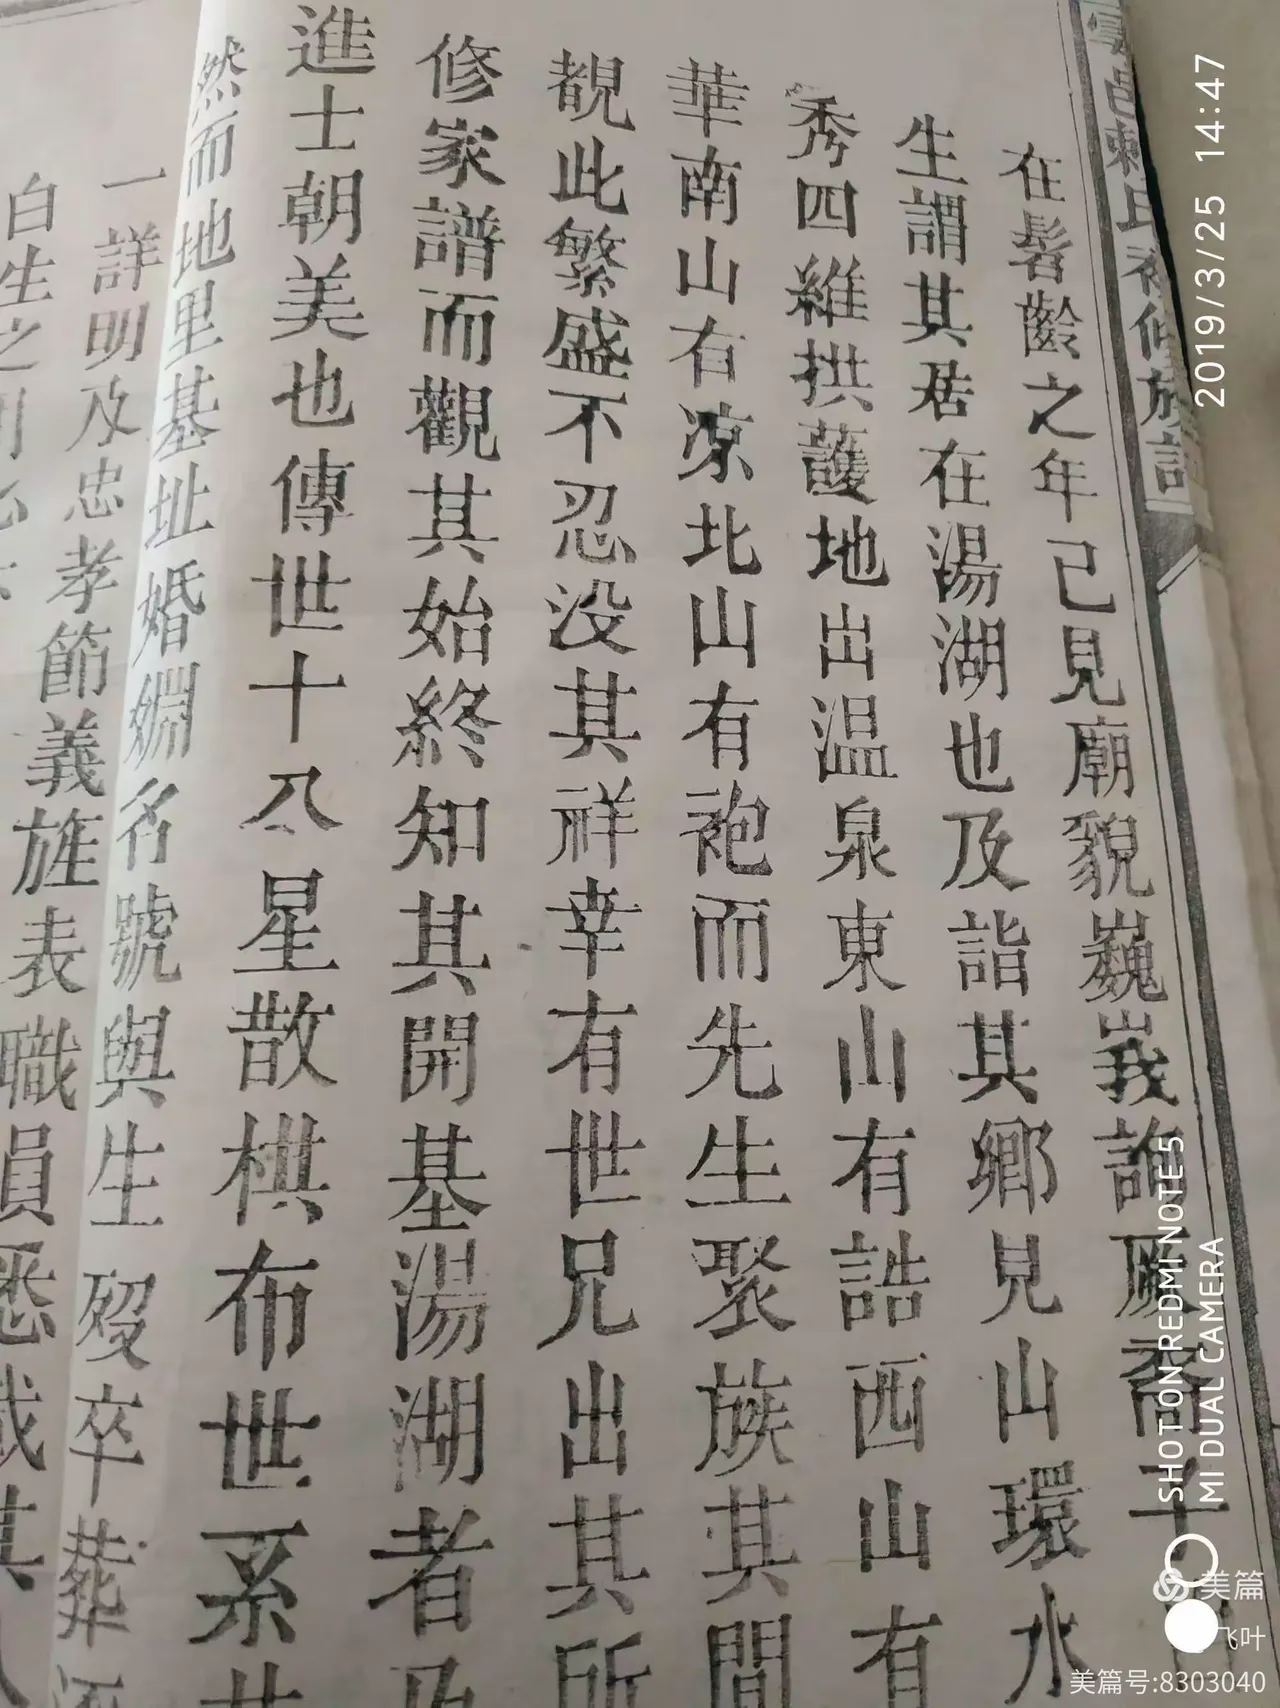 在髫齡之年已見廟貌巍峩詢厥裔子
生謂其居在湯湖也及詣其鄉見山環水
秀四維拱護地出温泉東山有誥西山有
華南山有凉北山有袍而先生聚族其間
覩此繁盛不忍没其祥幸有世兄出其所
修家譜而觀其始終知其開基湯湖者乃
進士朝美也傳世十八星散棋布世系
然而地里基址婚姻名號與生殁卒葬
一詳明及忠孝節義旌表職員悉載其
白生之
2019/3/25 14:47
SHOT ON REDMI NOTE5
MI DUAL CAMERA
美篇
飞叶
美篇号:8303040